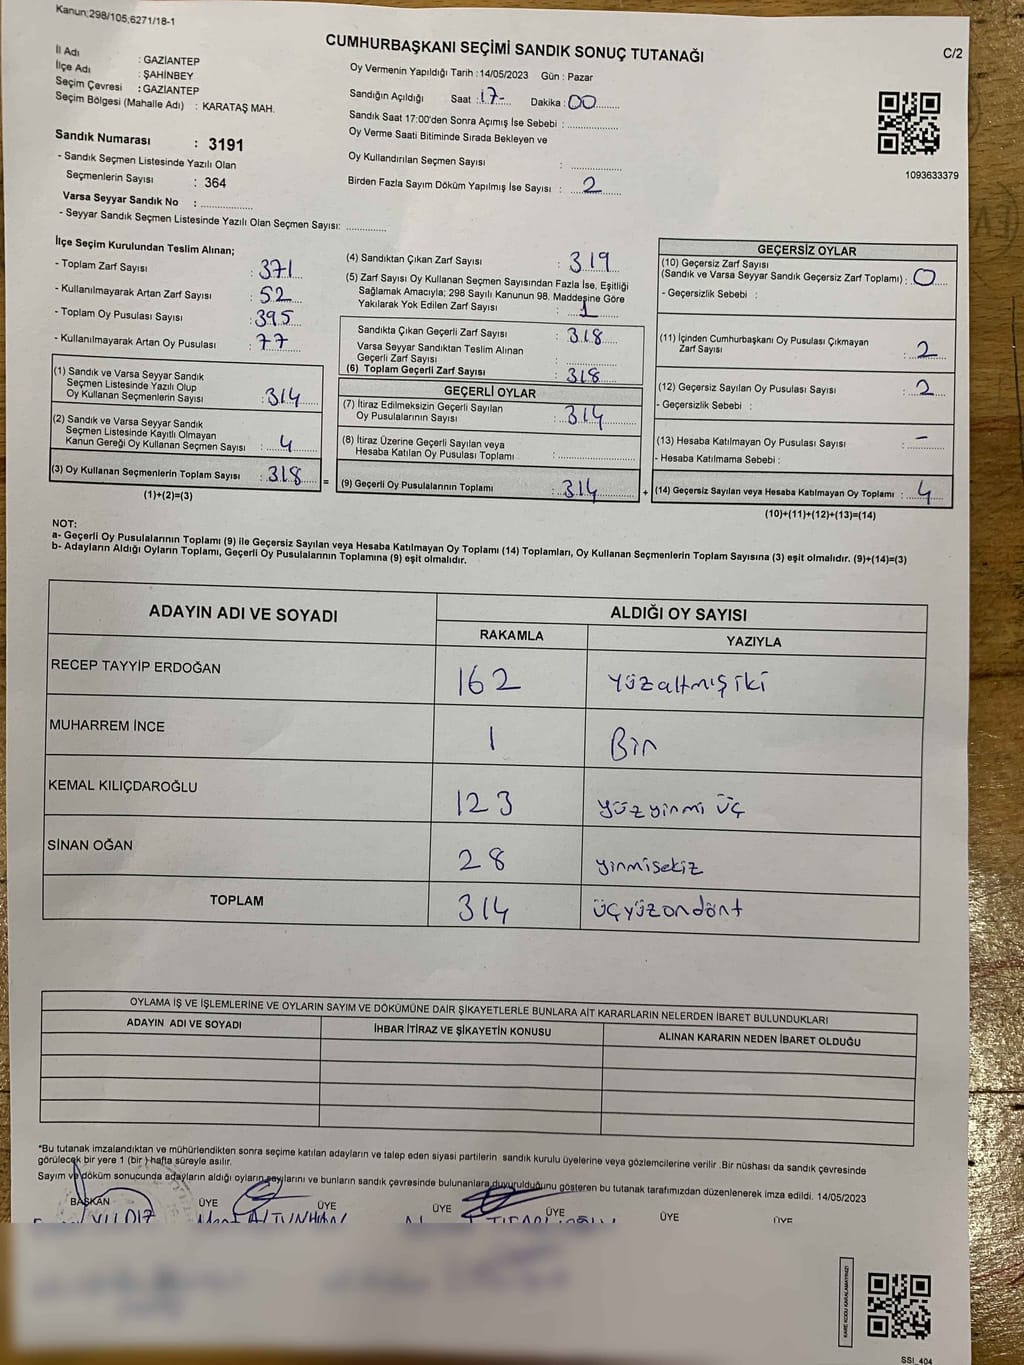 Kanun:298/105,6271/18-1
CUMHURBAŞKANI SEÇİMİ SANDIK SONUÇ TUTANAĞI
C/2
İl Adı : GAZİANTEP
İlçe Adı : ŞAHİNBEY
Seçim Çevresi : GAZİANTEP
Seçim Bölgesi (Mahalle Adı) : KARATAŞ MAH.
Sandık Numarası : 3191
- Sandık Seçmen Listesinde Yazılı Olan
Seçmenlerin Sayısı : 364
Varsa Seyyar Sandık No : ..............
- Seyyar Sandık Seçmen Listesinde Yazılı Olan Seçmen Sayısı: ............
Oy Vermenin Yapıldığı Tarih :14/05/2023 Gün : Pazar
Sandığın Açıldığı Saat : 17- Dakika : 00
Sandık Saat 17:00'den Sonra Açımış İse Sebebi : ..............
Oy Verme Saati Bitiminde Sırada Bekleyen ve
Oy Kullandırılan Seçmen Sayısı : ..............
Birden Fazla Sayım Döküm Yapılmış İse Sayısı : 2
1093633379
İlçe Seçim Kurulundan Teslim Alınan;
- Toplam Zarf Sayısı : 371
- Kullanılmayarak Artan Zarf Sayısı : 52
- Toplam Oy Pusulası Sayısı : 395
- Kullanılmayarak Artan Oy Pusulası : 77
(1) Sandık ve Varsa Seyyar Sandık
Seçmen Listesinde Yazılı Olup
Oy Kullanan Seçmenlerin Sayısı : 314
(2) Sandık ve Varsa Seyyar Sandık
Seçmen Listesinde Kayıtlı Olmayan
Kanun Gereği Oy Kullanan Seçmen Sayısı : 4
(3) Oy Kullanan Seçmenlerin Toplam Sayısı : 318
(1)+(2)=(3)
=
(4) Sandıktan Çıkan Zarf Sayısı : 319
(5) Zarf Sayısı Oy Kullanan Seçmen Sayısından Fazla İse, Eşitliği
Sağlamak Amacıyla; 298 Sayılı Kanunun 98. Maddesine Göre
Yakılarak Yok Edilen Zarf Sayısı : 1
Sandıkta Çıkan Geçerli Zarf Sayısı : 318
Varsa Seyyar Sandıktan Teslim Alınan
Geçerli Zarf Sayısı : ..............
(6) Toplam Geçerli Zarf Sayısı : 318
GEÇERLİ OYLAR
(7) İtiraz Edilmeksizin Geçerli Sayılan
Oy Pusulalarının Sayısı : 314
(8) İtiraz Üzerine Geçerli Sayılan veya
Hesaba Katılan Oy Pusulası Toplamı : ..............
(9) Geçerli Oy Pusulalarının Toplamı : 314
+
GEÇERSİZ OYLAR
(10) Geçersiz Zarf Sayısı
(Sandık ve Varsa Seyyar Sandık Geçersiz Zarf Toplamı) : 0
- Geçersizlik Sebebi :
(11) İçinden Cumhurbaşkanı Oy Pusulası Çıkmayan
Zarf Sayısı : 2
(12) Geçersiz Sayılan Oy Pusulası Sayısı : 2
- Geçersizlik Sebebi :
(13) Hesaba Katılmayan Oy Pusulası Sayısı : -
- Hesaba Katılmama Sebebi :
(14) Geçersiz Sayılan veya Hesaba Katılmayan Oy Toplamı : 4
(10)+(11)+(12)+(13)=(14)
NOT:
a- Geçerli Oy Pusulalarının Toplamı (9) ile Geçersiz Sayılan veya Hesaba Katılmayan Oy Toplamı (14) Toplamları, Oy Kullanan Seçmenlerin Toplam Sayısına (3) eşit olmalıdır. (9)+(14)=(3)
b- Adayların Aldığı Oyların Toplamı, Geçerli Oy Pusulalarının Toplamına (9) eşit olmalıdır.
ADAYIN ADI VE SOYADI ALDIĞI OY SAYISI
RAKAMLA YAZIYLA
RECEP TAYYİP ERDOĞAN 162 Yüzaltmış iki
MUHARREM İNCE 1 Bir
KEMAL KILIÇDAROĞLU 123 yüzyirmi üç
SİNAN OĞAN 28 yirmisekiz
TOPLAM 314 üçyüzondört
OYLAMA İŞ VE İŞLEMLERİNE VE OYLARIN SAYIM VE DÖKÜMÜNE DAİR ŞİKAYETLERLE BUNLARA AİT KARARLARIN NELERDEN İBARET BULUNDUKLARI
ADAYIN ADI VE SOYADI İHBAR İTİRAZ VE ŞİKAYETİN KONUSU ALINAN KARARIN NEDEN İBARET OLDUĞU
*Bu tutanak imzalandıktan ve mühürlendikten sonra seçime katılan adayların ve talep eden siyasi partilerin sandık kurulu üyelerine veya gözlemcilerine verilir .Bir nüshası da sandık çevresinde
görülecek bir yere 1 (bir ) hafta süreyle asılır.
Sayım ve döküm sonucunda adayların aldığı oyların sayılarını ve bunların sandık çevresinde bulunanlara duyurulduğunu gösteren bu tutanak tarafımızdan düzenlenerek imza edildi. 14/05/2023
BAŞKAN ÜYE ÜYE ÜYE ÜYE ÜYE ÜYE
YILDIZ ALTUNHAN
KARE KODU KARALAMAYINIZ!
SSI_404